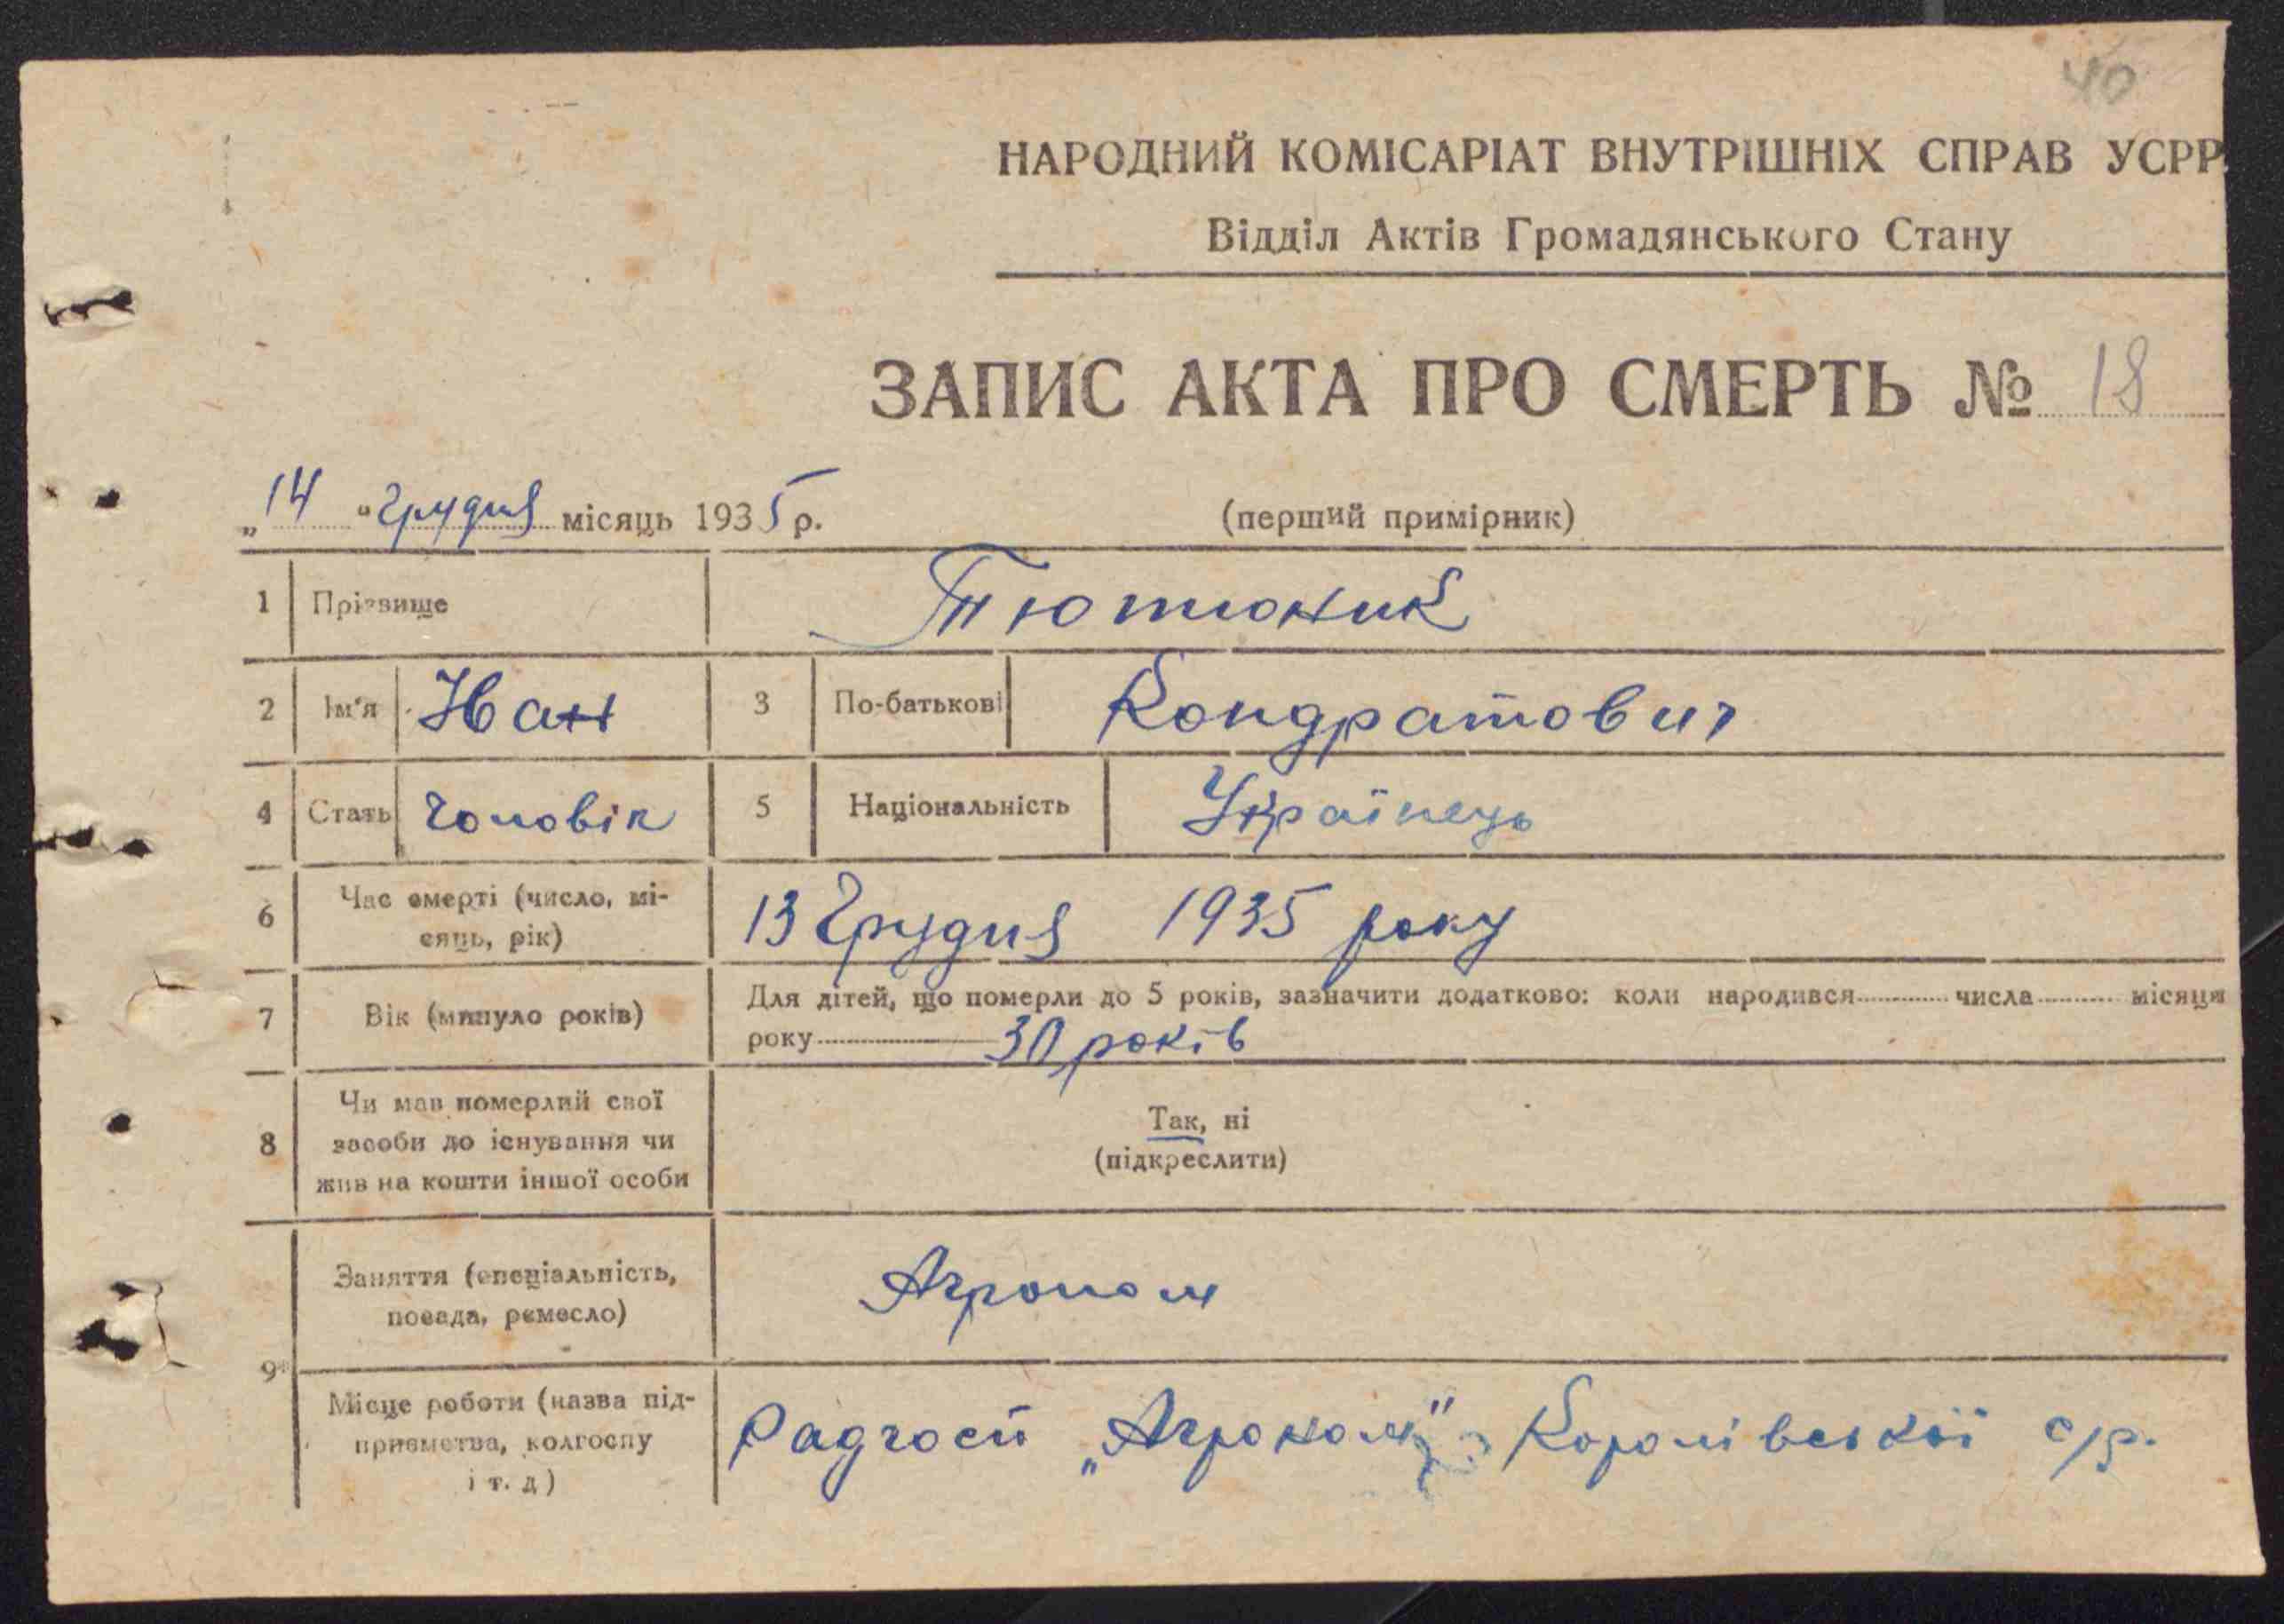 40
НАРОДНИЙ КОМІСАРІАТ ВНУТРІШНІХ СПРАВ УСРР
Відділ Актів Громадянського Стану
ЗАПИС АКТА ПРО СМЕРТЬ № 18
„14" Грудня місяць 1935 р.
(перший примірник)
1 Прізвище Тютюник
2 Ім'я Іван 3 По-батькові Кондратович
4 Стать Чоловік 5 Національність Українець
6 Час смерті (число, мі-
сяць, рік) 13 Грудня 1935 року
7 Вік (минуло років) Для дітей, що померли до 5 років, зазначити додатково: коли народився числа місяця
року 30 років
8 Чи мав померлий свої
засоби до існування чи
жив на кошти іншої особи
Так, ні
(підкреслити)
9 Заняття (спеціальність,
посада, ремесло) Агроном
Місце роботи (назва під-
приємства, колгоспу
і т. д) Радгосп „Агроном" Королівської с/р.